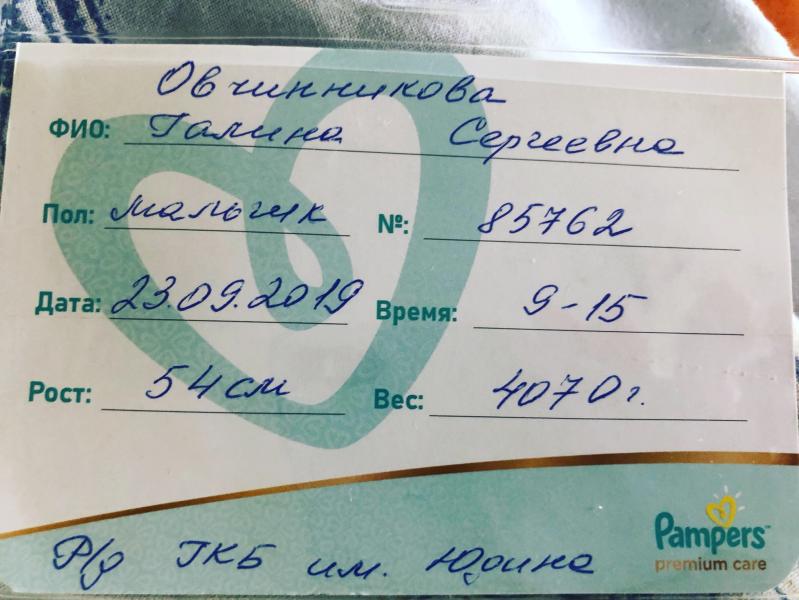 Овчинникова
ФИО: Галина Сергеевна
Пол: мальчик №: 85762
Дата: 23.09.2019 Время: 9-15
Рост: 54 см Вес: 4070 г.
Pampers™
premium care
Р/д ГКБ им. Юдина